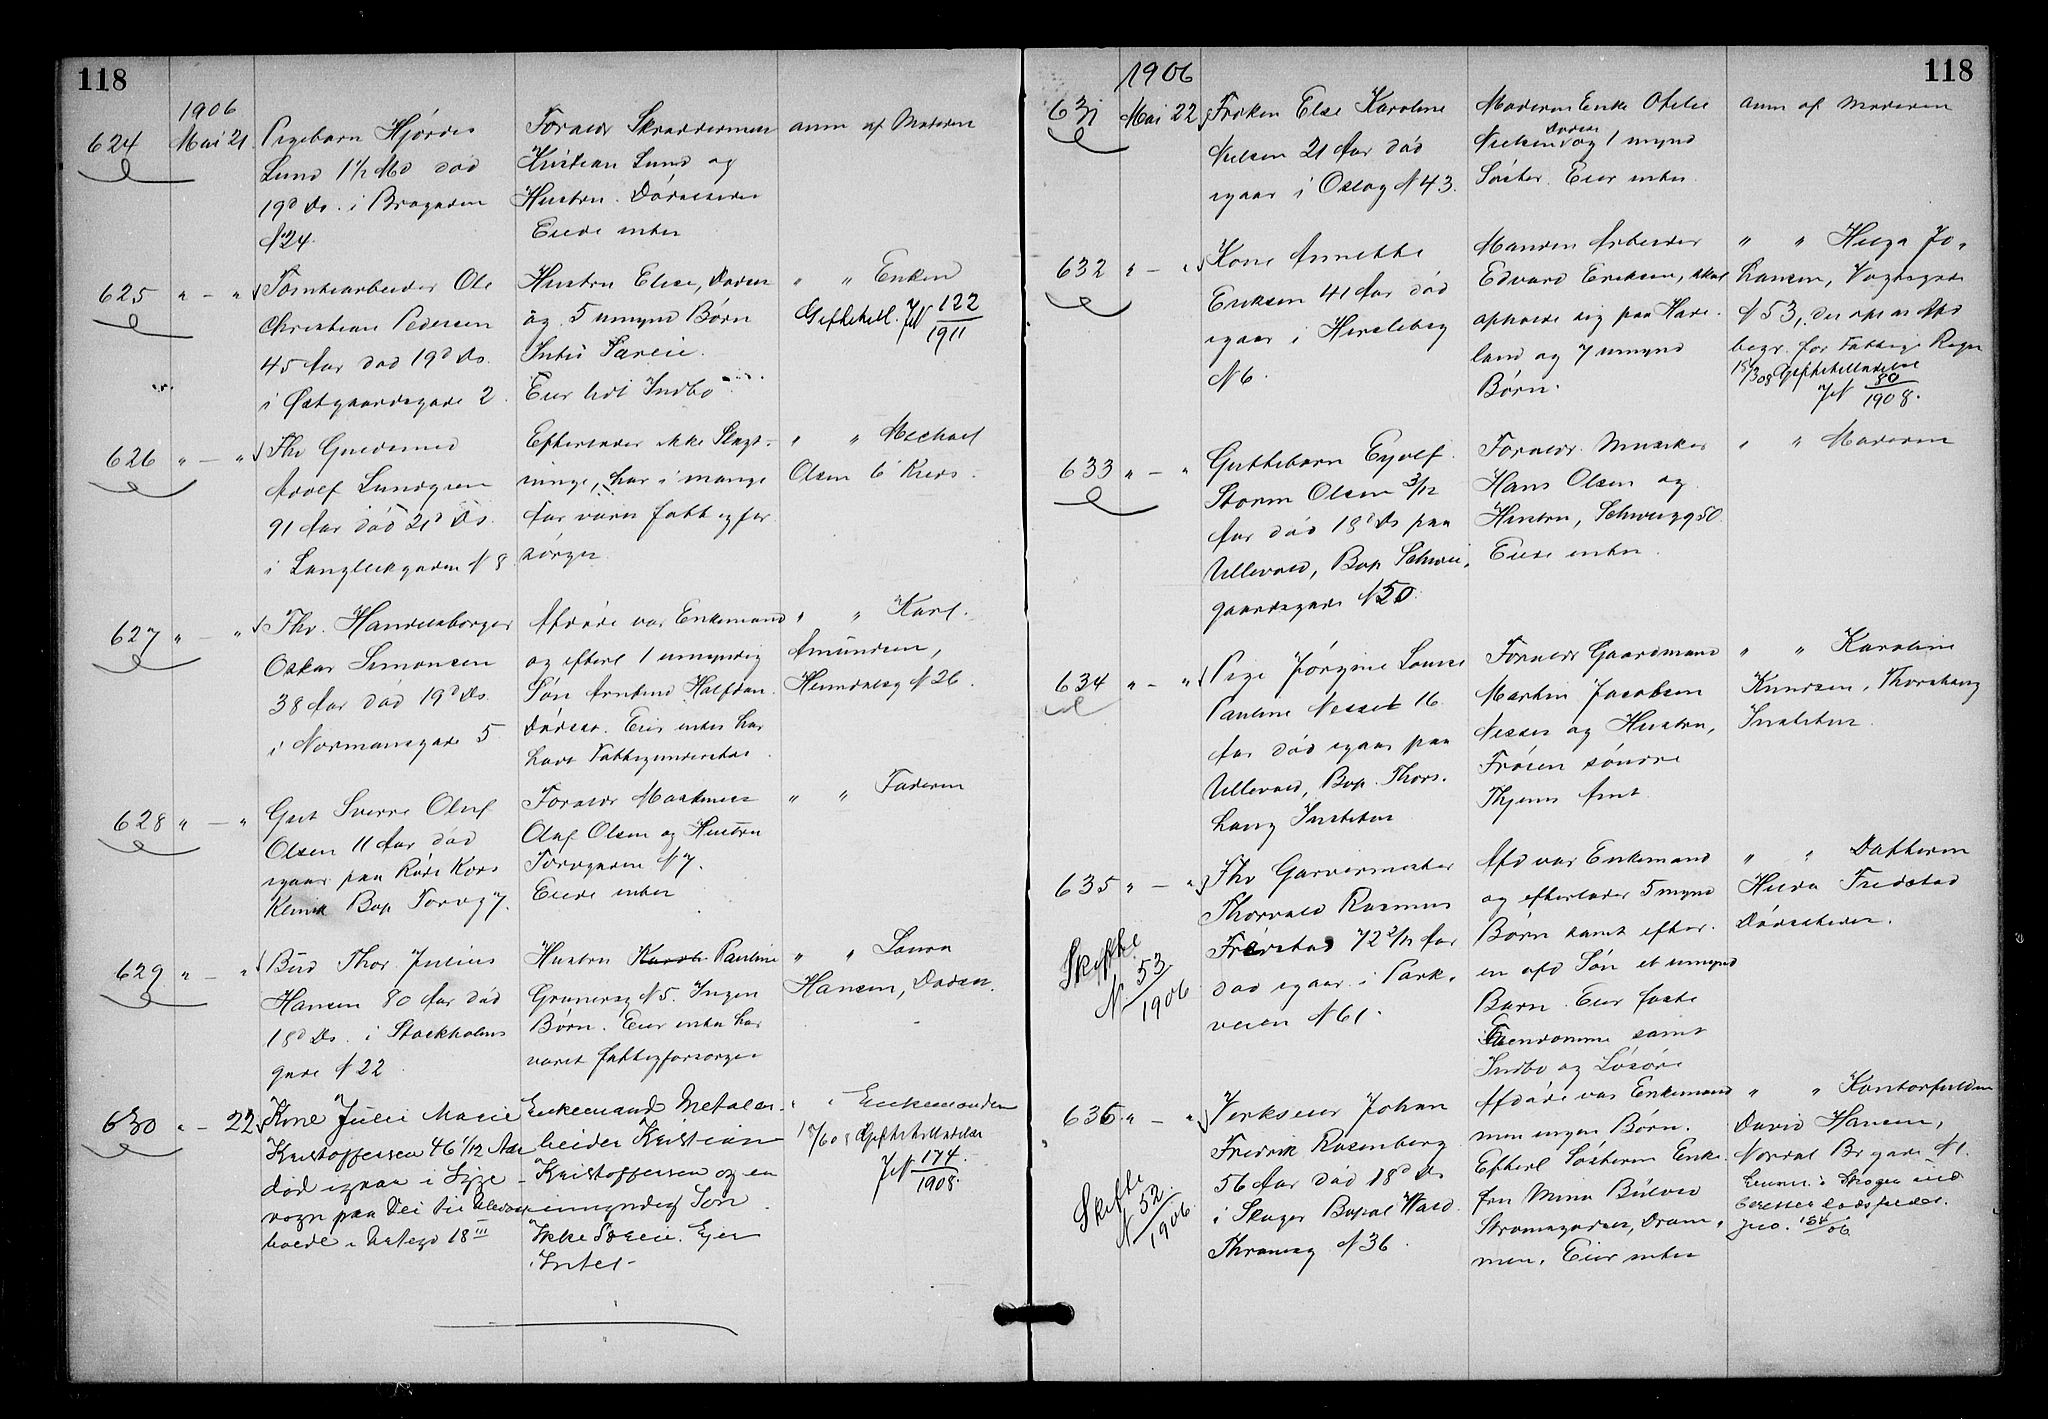 118
1906
624
Mai 21
Pigebarn Hjørdis
Lund 1 1/2 Md død
19d Ds. i Brogaden
N 24.
Forældr Skræddermester
Kristian Lund og
Hustru. Dödsstedet
Eiede intet
anm af Moderen
625 " — "
Tomtearbeider Ole
Christian Pedersen
45 Aar död 19d Ds.
i Østgaardsgade 2
Hustru Elise, Dödsst
og 5 umynd Børn
Intet Særeie.
Eier lidt Indbo
" " Enken
Gefhstill. JN 122/1911
626 " — "
Fhv Guldsmed
Adolf Lundgren
91 Aar död 21d Ds.
i Langleikgaden N 8
Efterlader ikke Slægt-
ninge, har i mange
Aar været fattigfor
sörget
" " Michael
Olsen 6 Kreds
627 " — "
Fhv. Handelsborger
Oskar Simonsen
38 Aar död 19d Ds.
i Normansgade 5
Afdøde var Enkemand
og efterl 1 umyndig
Sön Arntend Halfdan.
Dödsst. Eier intet har
havt Fattigunderstøt
" " Karl
Amundsen,
Heimdalsg N 26.
628 " — "
Gut Sverre Oluf
Olsen 11 Aar död
igaar paa Röde Kors
Klinik Bop Torvg 7.
Forældr Maskinist
Oluf Olsen og Hustru
Torvgaden N 7.
Eiede intet
" " Faderen
629 " — "
Bud Thor Julius
Hansen 80 Aar död
18d Ds. i Stockholms
gade N 22
Hustru Pauline
Grünersg N 5. Ingen
Börn. Eier intet har
været fattigforsörget
" " Laura
Hansen, Dödsst.
630 " — 22
Kone Julie Marie
Kristoffersen 46 1/12 Aar
död igaar i Syge-
vogn paa Vei til Ullevaal
boede i 18 III
Enkemand Metalar-
beider Kristian
Kristoffersen og en
umyndig Sön
Ikke Særeie. Ejer
Intet-
" " Enkemanden
18/6 08 Gefhstilladelse
JN 174/1908.
1906
118
631
Mai 22
Fröken Else Karoline
Nielsen 21 Aar död
igaar i Oslog N 43.
Moderen Enke Otelie
Nielsen Dödsst og 1 umynd
Söster. Eier intet
anm af Moderen
632 " — "
Kone Annette
Eriksen 41 Aar död
igaar i Herslebsg
N 6.
Manden Arbeider
Edvard Eriksen, skal
opholde sig paa Hade-
land og 7 umynd
Børn.
" " Helga Jo-
hansen, Vogtsgade
N 53, der opl at Afd
begr. for Fattigv Regn
15/3 08 Gefhstilladelse
JN 80/1908.
633 " — "
Guttebarn Eyolf
Storm Olsen 3/12
Aar död 18d Ds paa
Ullevaal, Bop Schwei-
gaardsgade N 50.
Forældr. Musiker
Hans Olsen og
Hustru, Schweigg 50.
Eiede intet.
" " Moderen
634 " — "
Pige Jörgine Louise
Pauline Nesset 16
Aar död igaar paa
Ullevaal, Bop. Thors-
haug Institut
Forældr Gaardmand
Martin Jacobsen
Nesset og Hustru,
Fröien söndre
Thjems Amt
" " Karoline
Knudsen, Thorshaug
Institut.
635 " — "
Skifte
N 53/1906
Fhv Garvermester
Thorvald Rasmus
Fredstad 72 2/12 Aar
död igaar i Park-
veien N 61.
Afd var Enkemand
og efterlader 5 mynd
Börn samt efter
en afd Sön et umynd
Barn. Eier faste
Eiendomme samt
Indbo og Lösöre
" " Datteren
Hilda Fredstad
Dödsstedet.
636 " — "
Skifte
N 52/1906.
Verkseier Johan
Fredrik Rosenberg
56 Aar död 18d Ds
i Skoger Bopæl Wald.
Thranesg N 36.
Afdöde var Enkemand
men ingen Børn.
Efterl Søsteren Enke-
fru Mina Bülow
Strömsgodset, Dram-
men. Eier intet
" " Kontorfuldm
David Hansen,
Nordal Br gade N 1.
Lensm. i Skoger ind
beretter dødsfaldet.
Jno. 154/06.